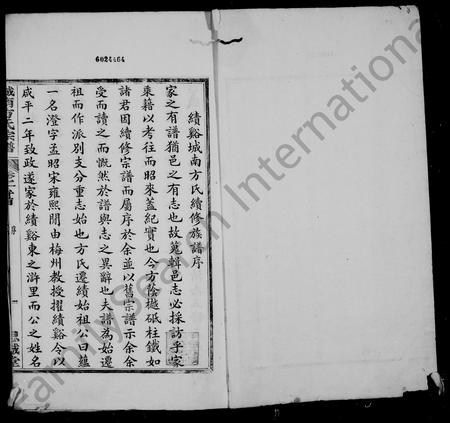 6024464
績谿城南方氏續修族譜序
家之有譜猶邑之有志也故蒐輯邑志必採訪乎家
乘藉以考往而昭來蓋紀實也今方蔭樾砥柱鐵如
諸君因續修宗譜而屬序於余並以舊宗譜示余余
受而讀之而慨然於譜與志之異辭也夫譜為始遷
祖而作派別支分重志始也方氏遷績始祖公曰蘊
一名澄字孟昭宋雍熙間由梅州教授擢績谿令以
咸平二年致政遂家於績谿東之滸里而公之姓名
城南方氏宗譜
卷之首
序
一
思誠堂
FamilySearch International